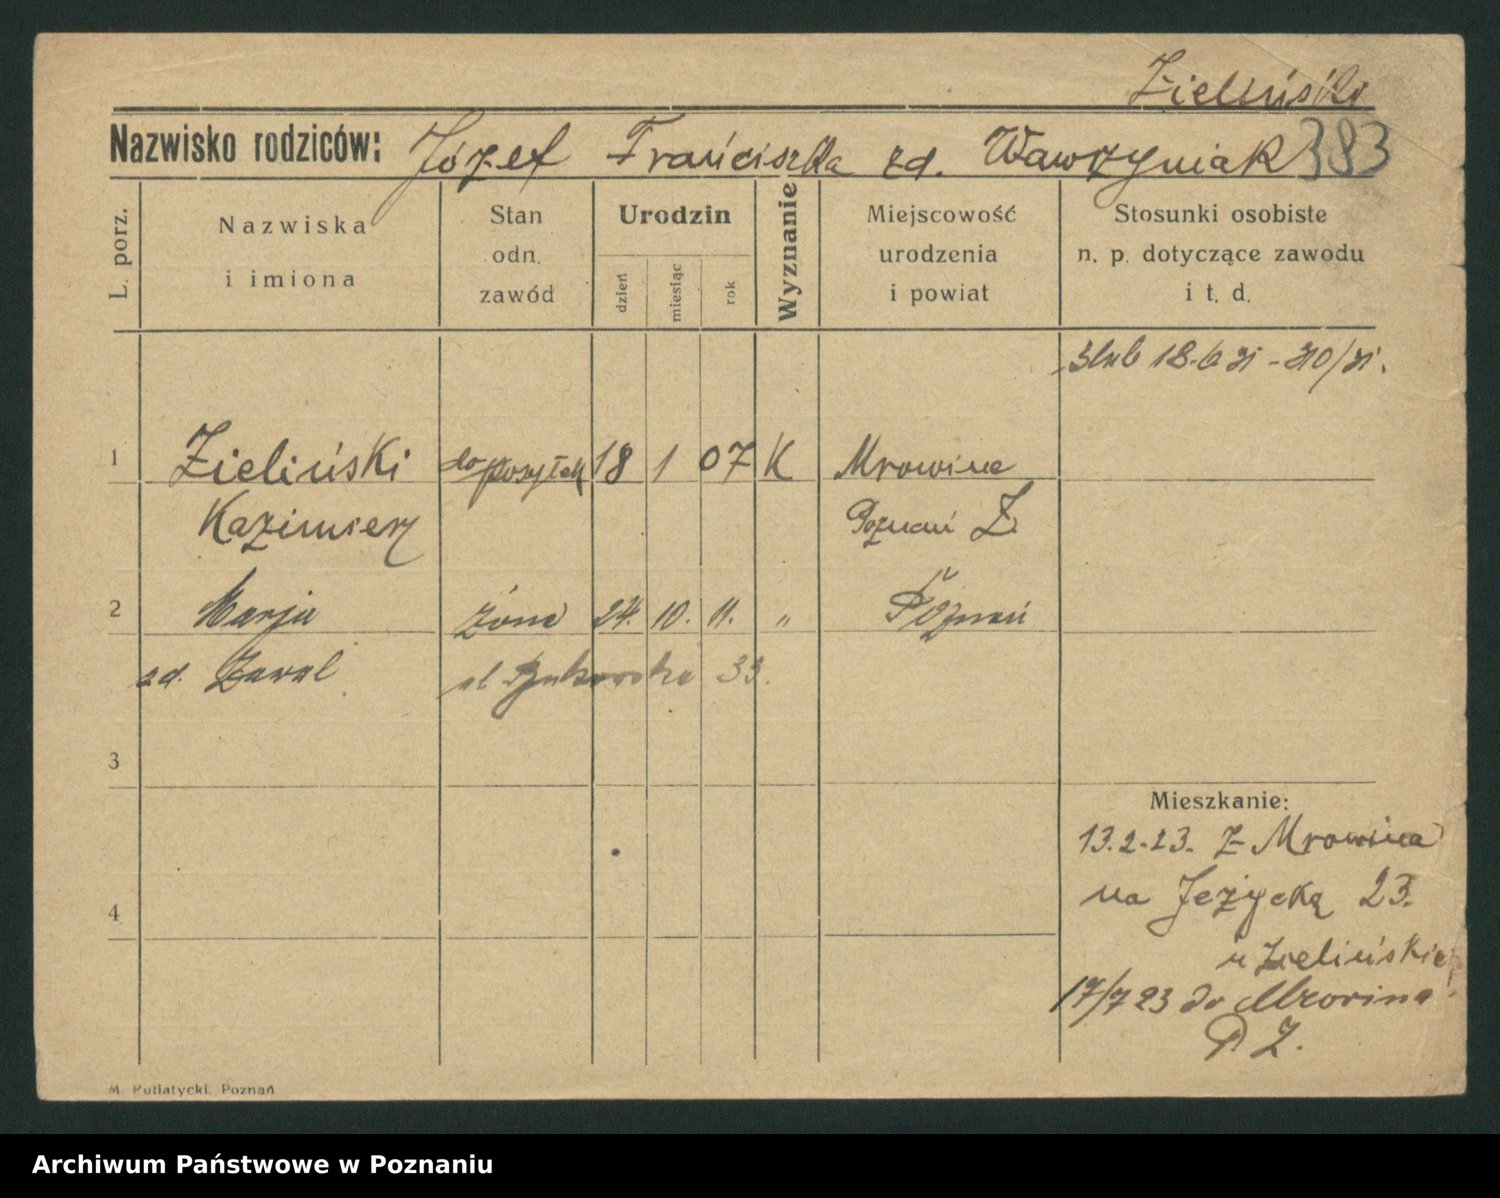 Zieliński
Nazwisko rodziców: Józef Franciszka zd. Wawrzyniak 383
L. porz.
Nazwiska
i imiona
Stan
odn.
zawód
Urodzin
dzień
miesiąc
rok
Wyznanie
Miejscowość
urodzenia
i powiat
Stosunki osobiste
n. p. dotyczące zawodu
i t. d.
ślub 18.6 31 - 310/31.
1 Zieliński do posyłek 18 1 07 K Mrowino
Kazimierz Poznań Z.
2 Marja żona 24. 10. 11. „ Poznań
zd. Zawal ul Bukowska 33.
3
4
Mieszkanie:
13.2.23. Z Mrowina
na Jeżycką 23.
u Zielińskie
17/7 23 do Mrowina
P. Z.
M. Putiatycki, Poznań
Archiwum Państwowe w Poznaniu